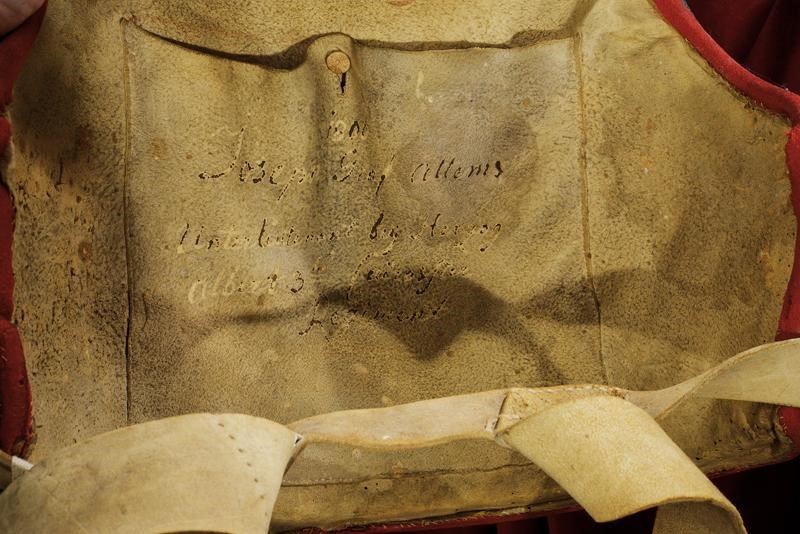 Joseph Graf Attems
Unterlieutenant by Herzog
Albert 3
Regiment